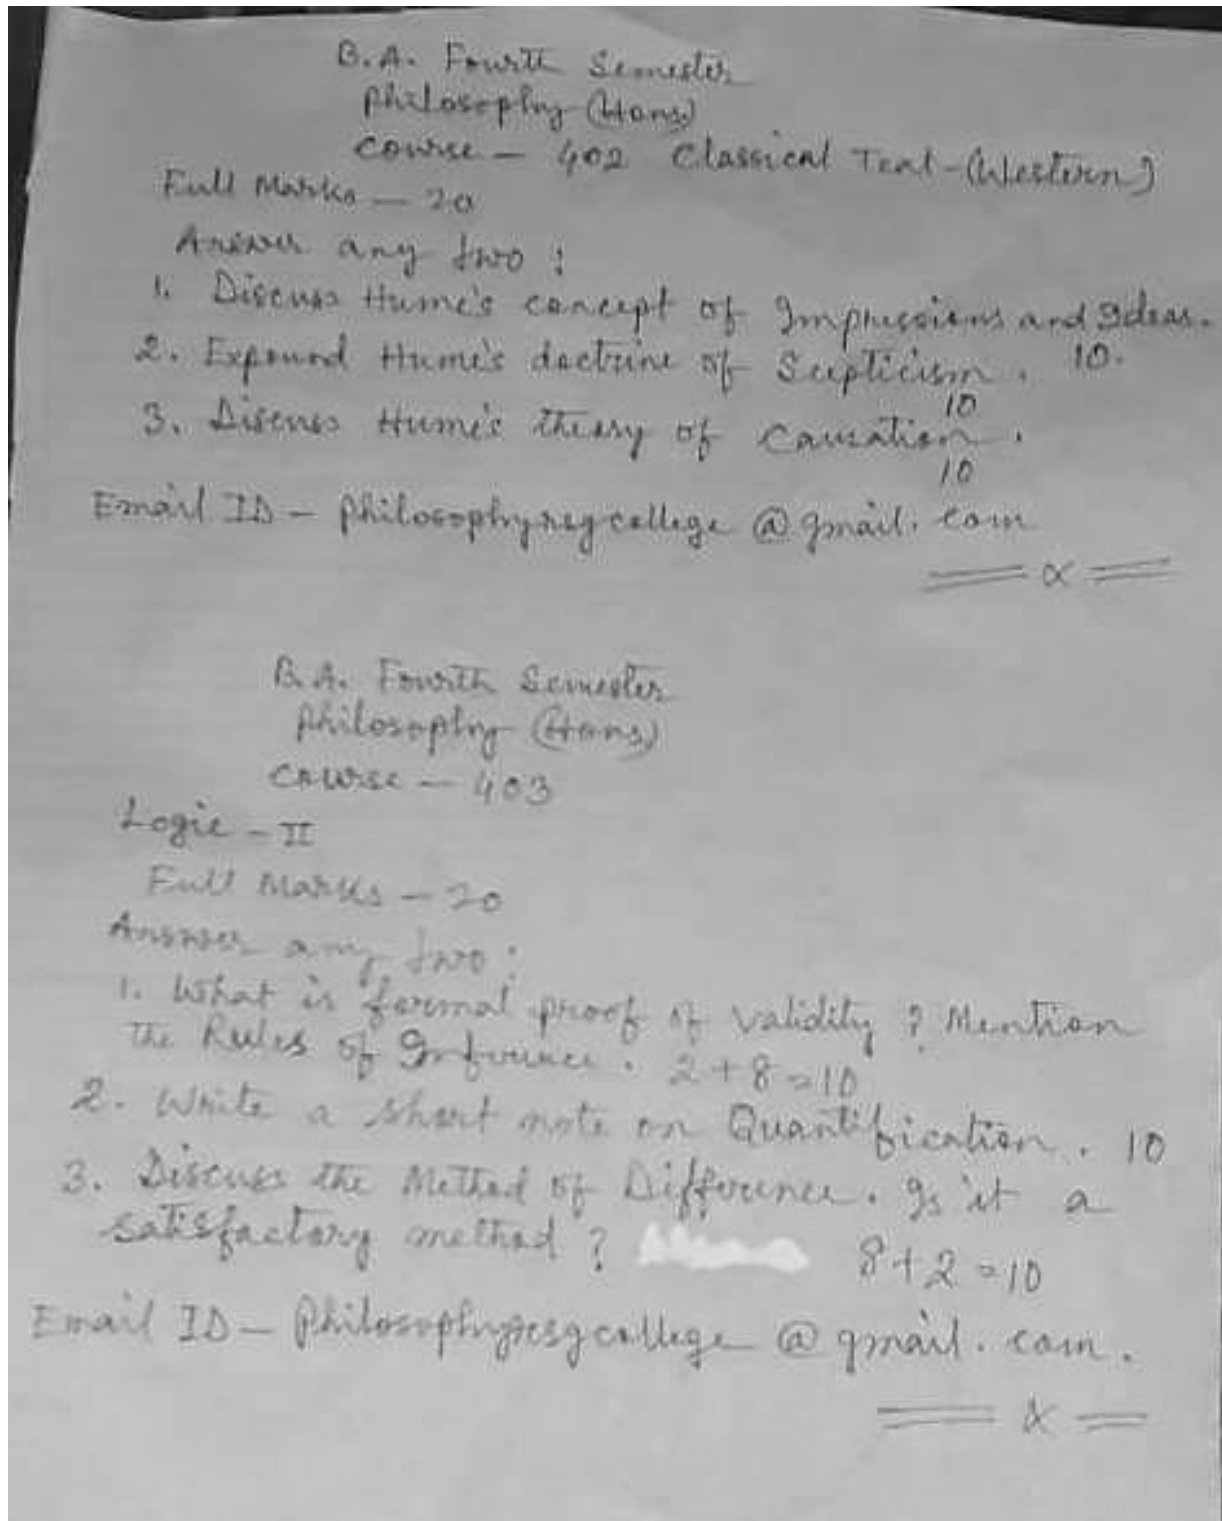 B.A. Fourth Semester
Philosophy (Hons)
Course — 402 Classical Text - (Western)
Full Marks — 20
Answer any two :
1. Discuss Hume's concept of Impressions and Ideas.
10.
2. Expound Hume's doctrine of Scepticism.
10
3. Discuss Hume's theory of Causation.
10
Email ID —
B.A. Fourth Semester
Philosophy (Hons)
Course — 403
Logic - II
Full Marks — 20
Answer any two :
1. What is 'formal proof of validity ? Mention
the Rules of Inference. 2+8=10
2. Write a short note on Quantification. 10
3. Discuss the Method of Difference. Is it a
satisfactory method ? 8+2=10
Email ID —